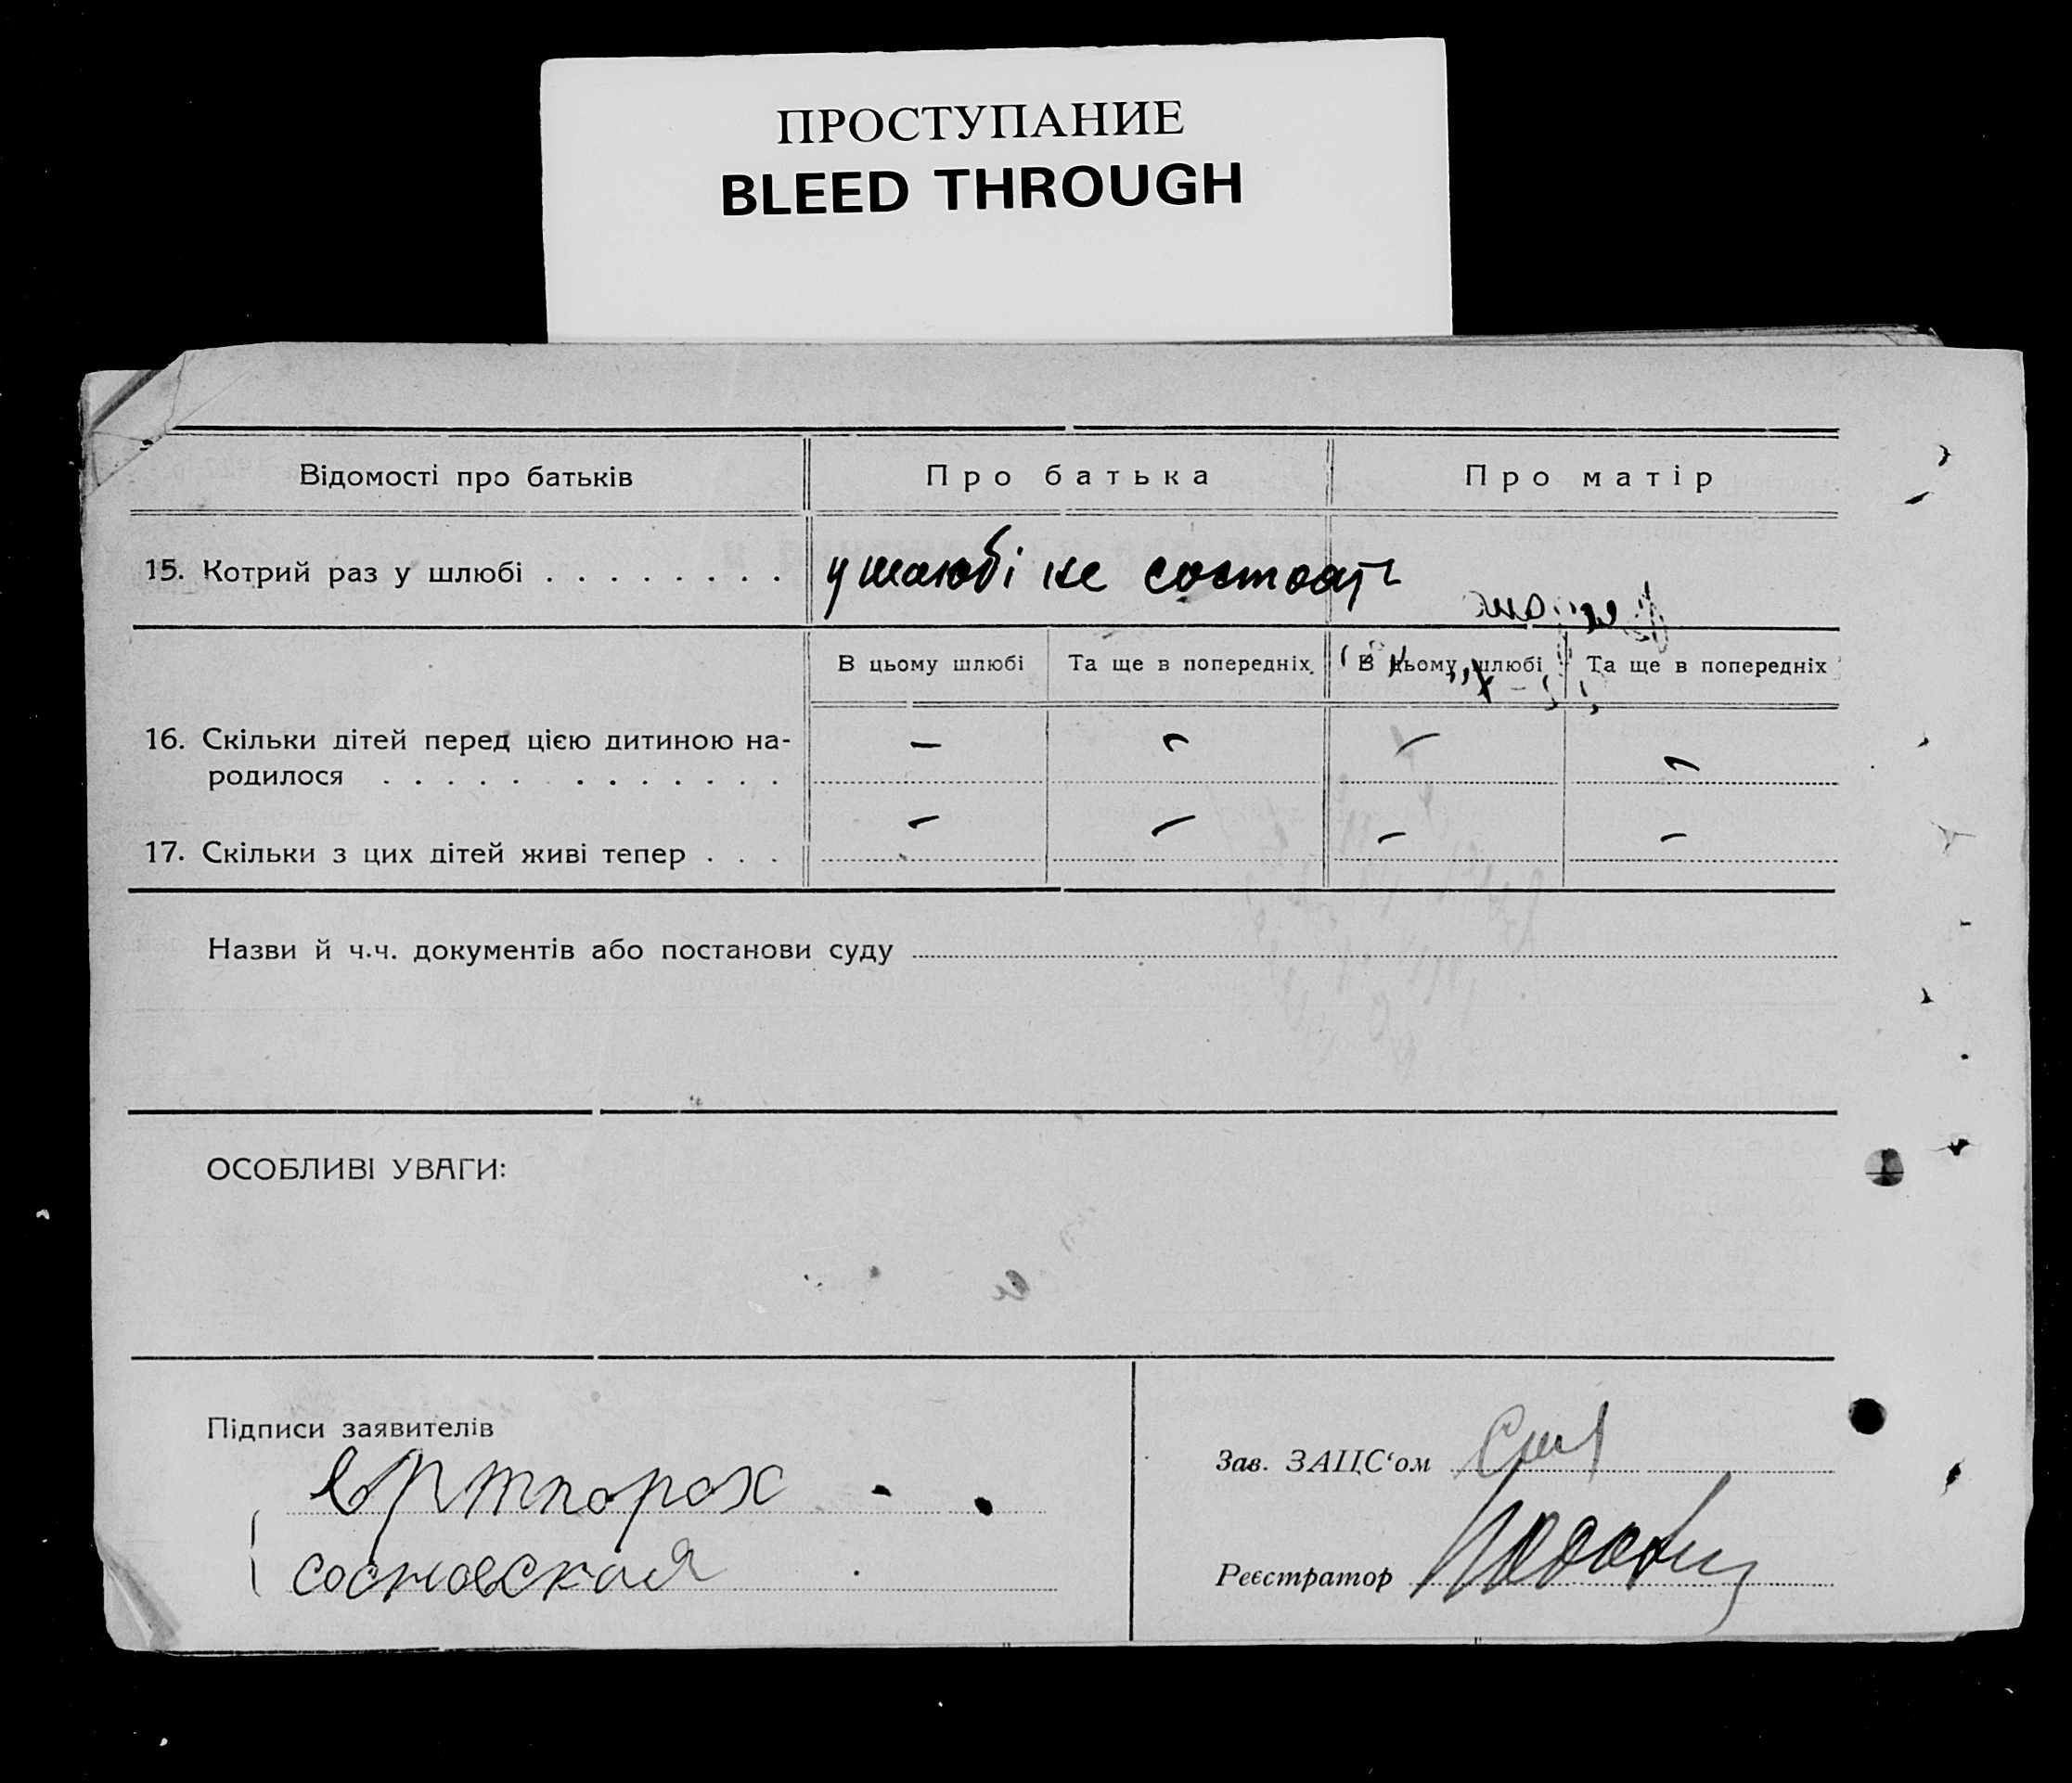 ПРОСТУПАНИЕ
BLEED THROUGH
Відомості про батьків Про батька Про матір
15. Котрий раз у шлюбі . . . . . . . . у шлюбі не состоать
В цьому шлюбі Та ще в попередніх В цьому шлюбі Та ще в попередніх
16. Скільки дітей перед цією дитиною на- — — — —
родилося . . . . . . . . . . . .
17. Скільки з цих дітей живі тепер . . . — — — —
Назви й ч.ч. документів або постанови суду
ОСОБЛИВІ УВАГИ:
Підписи заявителів
Зав. ЗАЦС‘ом
сосновская
Реєстратор